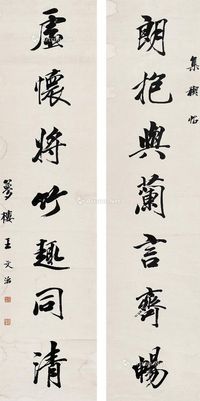 集禊帖
朗抱與蘭言齊暢
虛懷將竹趣同清
夢樓王文治